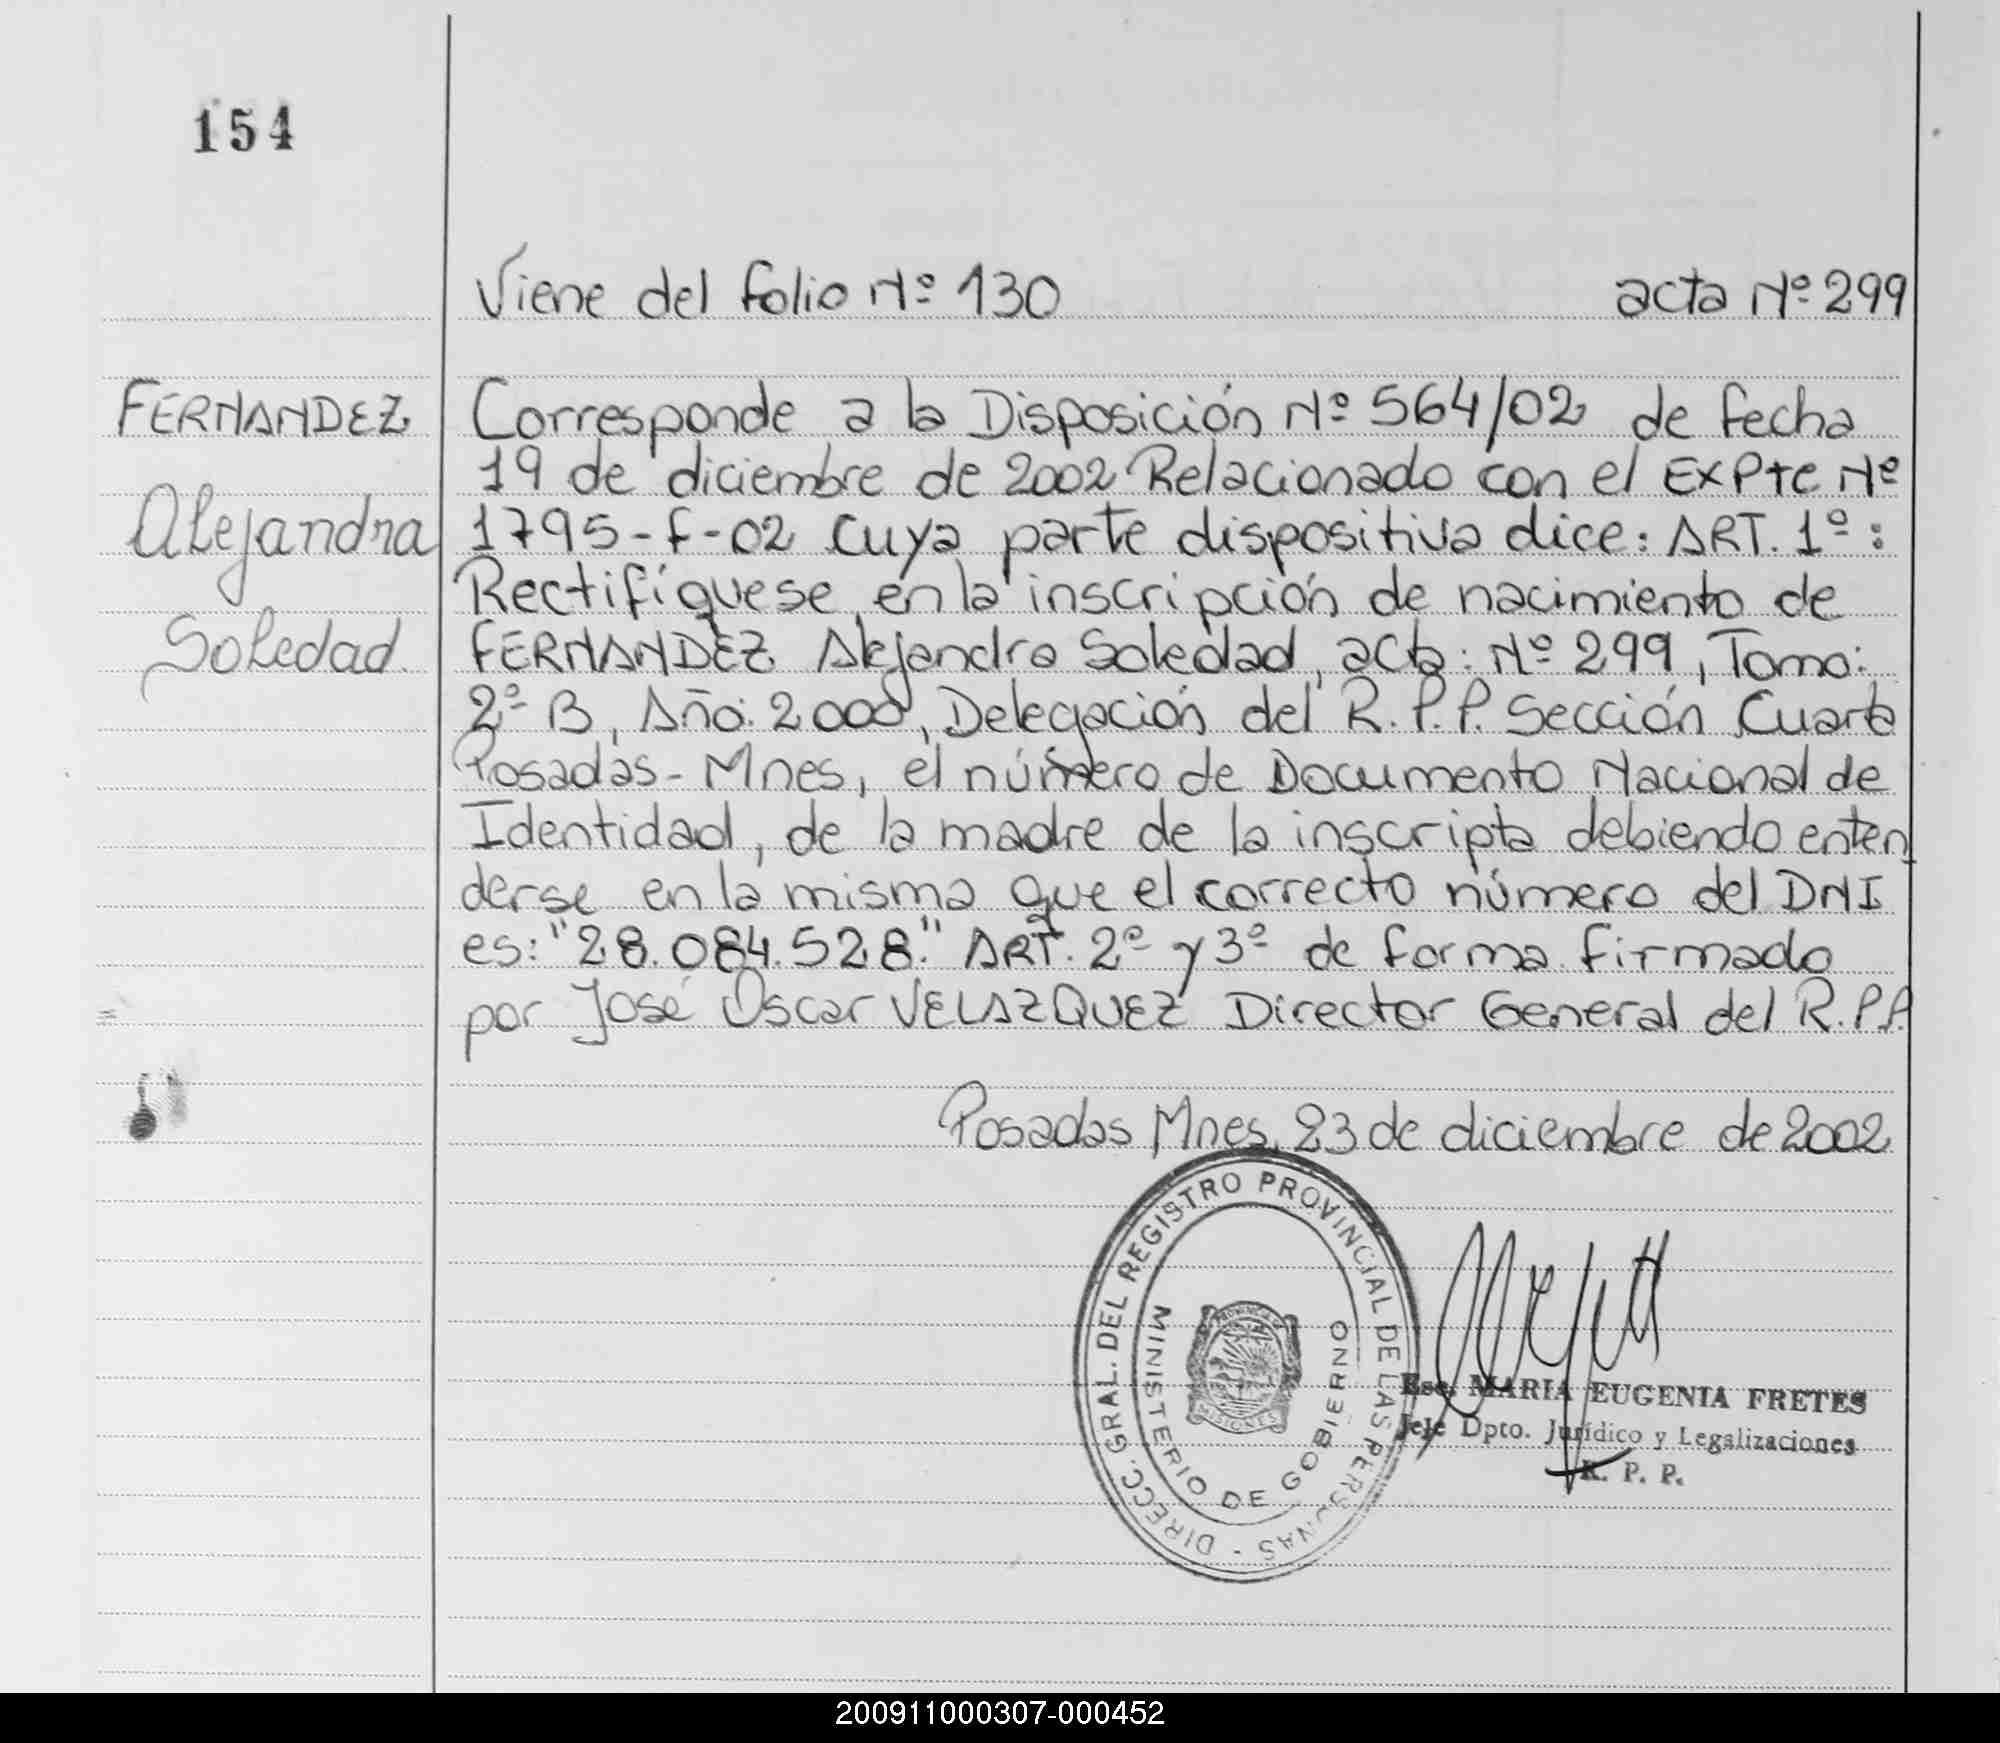 154
Viene del folio Nº 130 acta Nº 299
FERNANDEZ
Alejandra
Soledad.
Corresponde a la Disposición Nº 564/02 de fecha
19 de diciembre de 2002 Relacionado con el EXPte Nº
1795-f-02 cuya parte dispositiva dice: ART. 1º:
Rectifíquese en la inscripción de nacimiento de
FERNANDEZ Alejandra Soledad, acta: Nº 299, Tomo:
2º B, Año: 2000, Delegación del R.P.P. Sección Cuarta
Posadas-Mnes, el número de Documento Nacional de
Identidad, de la madre de la inscripta debiendo enten
derse en la misma que el correcto número del DNI
es: "28.084.528." ART. 2º y 3º de forma firmado
por José Oscar VELAZQUEZ Director General del R.P.P.
Posadas Mnes, 23 de diciembre de 2002
DIRECC. GRAL. DEL REGISTRO PROVINCIAL DE LAS PERSONAS -
MINISTERIO DE GOBIERNO
PROVINCIA
MISIONES
Esc. MARIA EUGENIA FRETES
Jefe Dpto. Jurídico y Legalizaciones
R. P. P.
200911000307-000452